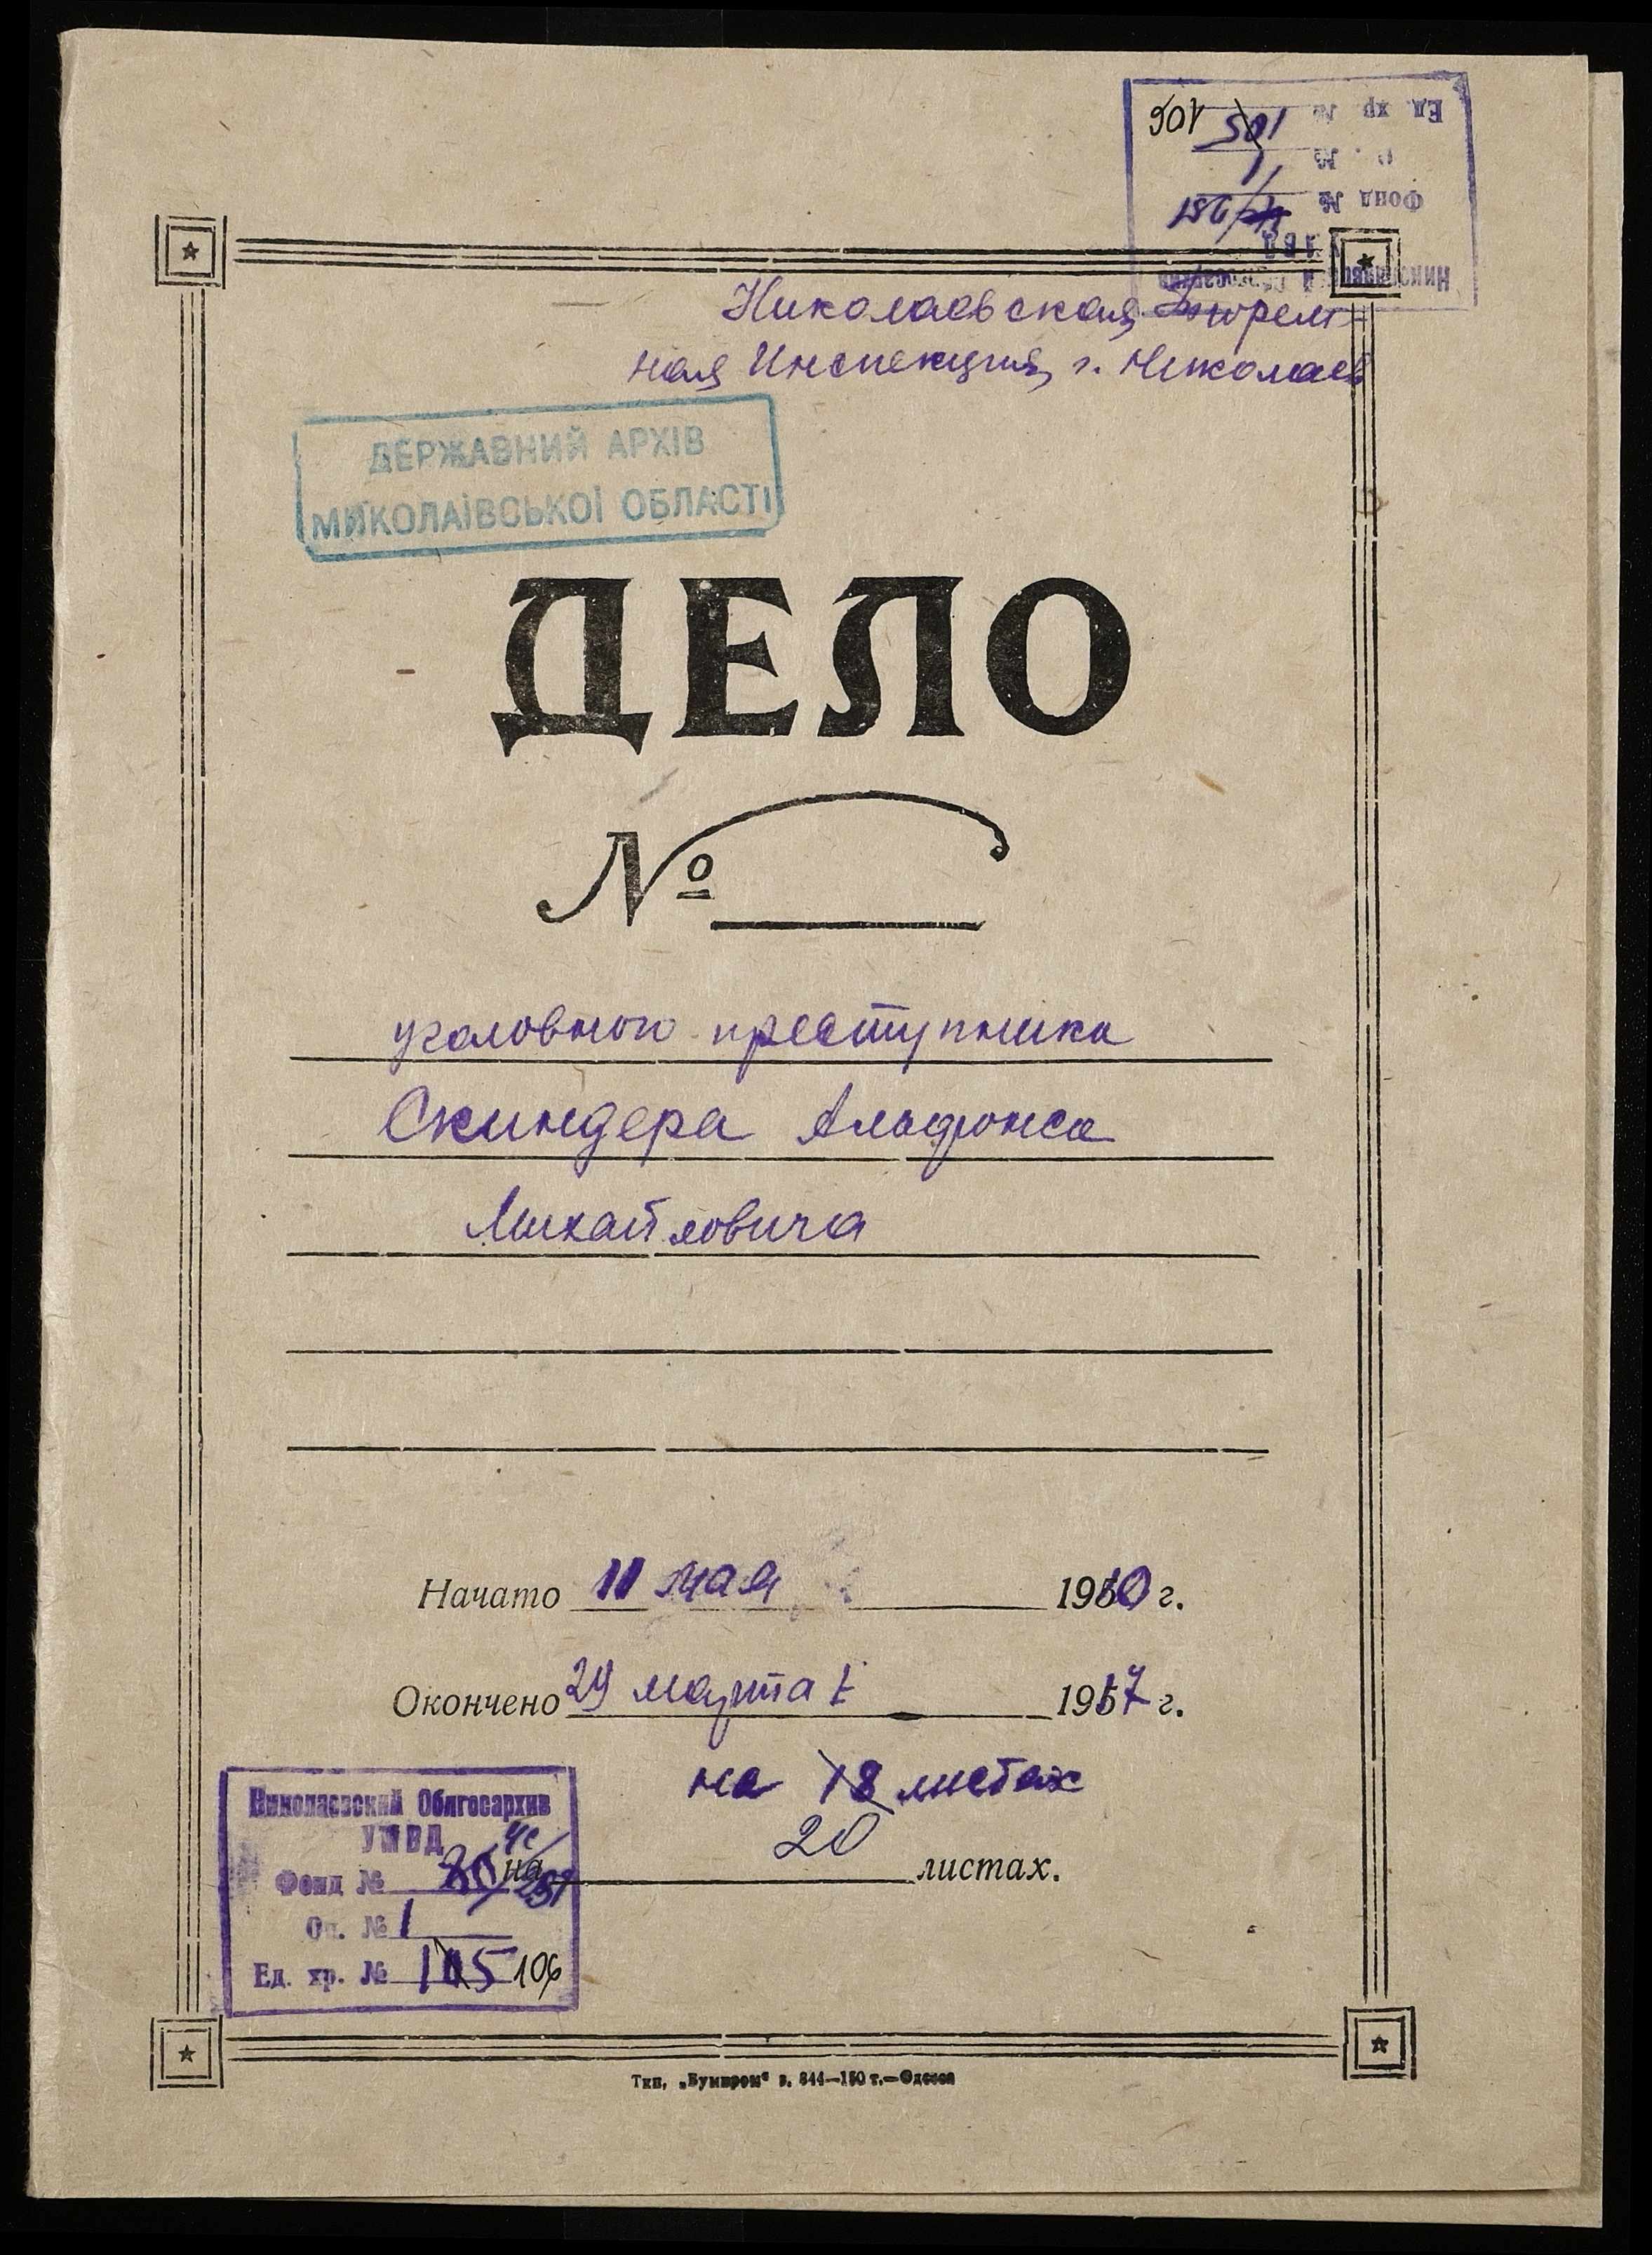 Ед. хр. № 105 106
о . № 1
Фонд № 251
Николаевская Тюрем=
ная Инспекция, г. Николаев
ДЕРЖАВНИЙ АРХІВ
МИКОЛАЇВСЬКОЇ ОБЛАСТІ
ДЕЛО
№
уголовного преступника
Скиндера Альфонса
Михайловича
Начато 11 мая 1910 г.
Окончено 29 марта 1917 г.
на 18 листах
20
на листах.
Николаевский Облгосархив
УМВД
Фонд № 251
Оп. № 1
Ед. хр. № 105 106
Тип. „Бумпром“ з. 844—150 т.—Одесса